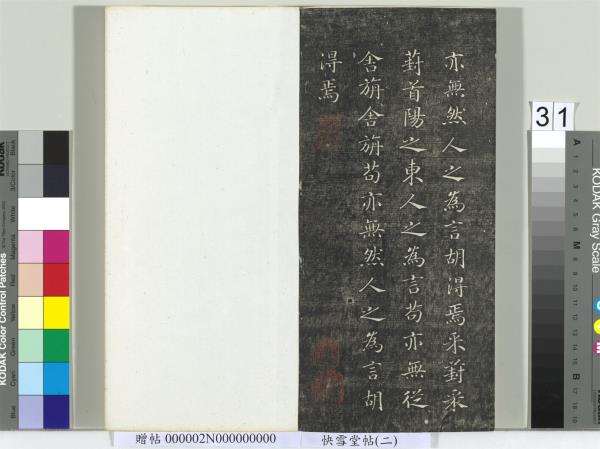 亦無然人之為言胡得焉采葑采
葑首陽之東人之為言苟亦無從
舍旃舍旃苟亦無然人之為言胡
得焉
31
贈帖 000002N000000000 快雪堂帖(二)
KODAK Color Control Patches
Blue Cyan Green Yellow Red Magenta White 3/Color Black
KODAK Gray Scale
A 1 2 3 4 5 6 M 8 9 10 11 12 13 14 15 B 17 18 19